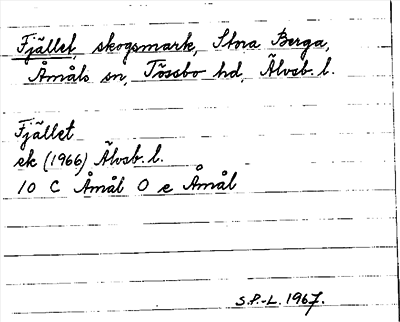 Fjället, skogsmark, Stora Berga,
Åmåls sn, Tössbo hd, Älvsb. l.
Fjället
ek (1966) Älvsb. l.
10 C Åmål O e Åmål
S.P.-L. 1967.